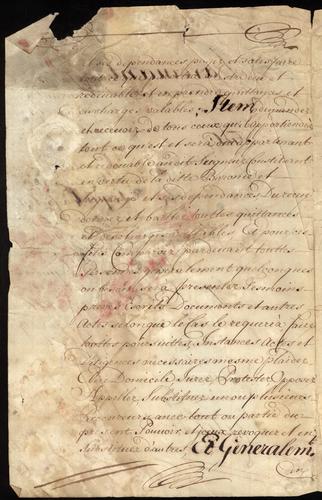 et ses dependances payer et satisfaire
tout
redevables et en prendre quittances et
descharges valables, Item, demander
et recevoir de tous ceux qu'il appartiendra
tout ce qui est et sera deub appartenant
et redevable audit Seigneur constituant
en vertu de la ditte Baronnie et
et ses dependances Du receu
donner et bailler touttes quittances
et descharges valables, Et pour ce
fait Comparoir pardevant touttes
personnes generalement quelconques
ou besoin sera presenter Tesmoins
preuves Escrits Documents et autres
Actes selon que le Cas le requerra faire
touttes poursuittes, Instances Actes et
diligences necessaires mesme plaider
Elire Domicile Jurer Protester Opposer
Appeller, Substituer un ou plusieurs
Procureurs avec tout ou partie du
present Pouvoir et iceux revoquer et en
substituer d'autres Et Generalemt.